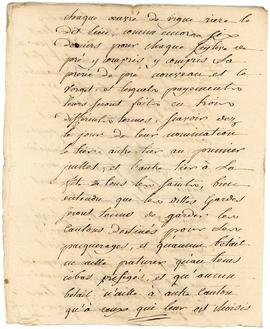 chaque œuvré de vigne riere le
dit lieu, comme encore
deniers pour chaque
pré y compris, y compris La
de pré nouveau et le
et lesquels payements
leurs seront faits en trois
differents termes, sçavoir des
le jour de leur nommination
le tier, autre tier au premier
juillet, et l'autre tier à La
fête de tous les saints, bien
entendu que les dittes Gardes
sront tenus de garder les
cantons destinés pour les
paquerages, et qu'aucun betail
ne aille paturer qu'au lieux
cabas prefigés, et qu'aucun
betail n'aille à autre Canton
qu'à ceux qui leur est choisis